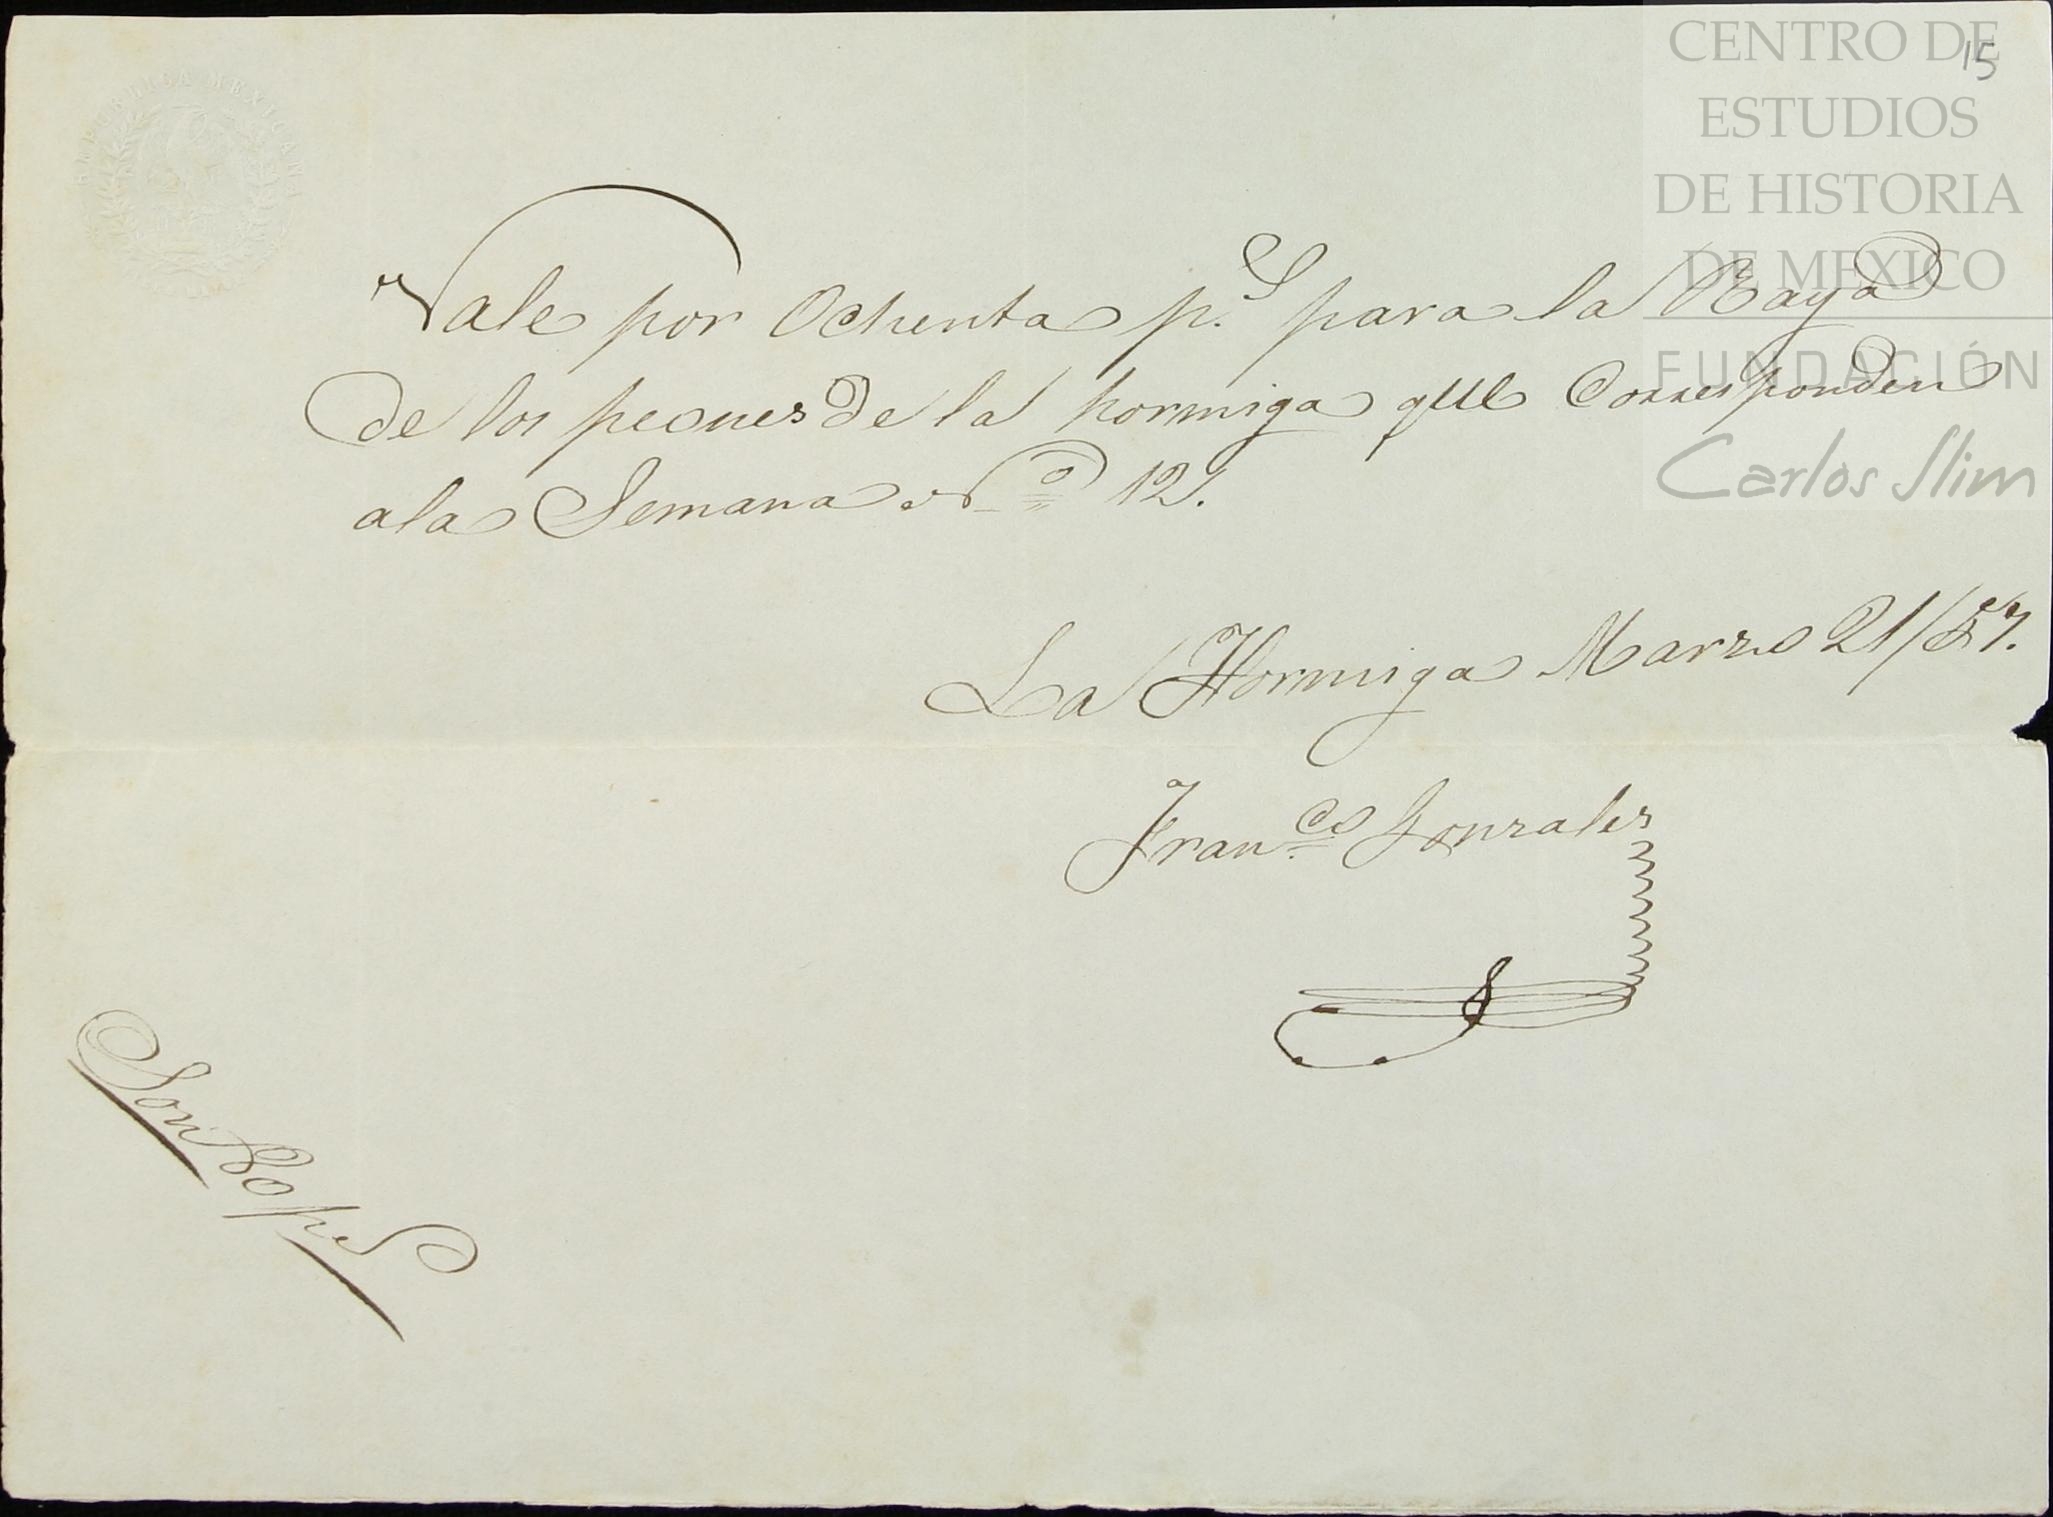 REPUBLICA MEXICANA
CENTRO DE
ESTUDIOS
DE HISTORIA
DE MEXICO
FUNDACIÓN
Carlos Slim
15
Vale por Ochenta p.s para la Raya
de los peones de la hormiga que Corresponden
ala Semana No 12.
La Hormiga Marzo 21/87.
Franco Gonzales
Son 80 ps